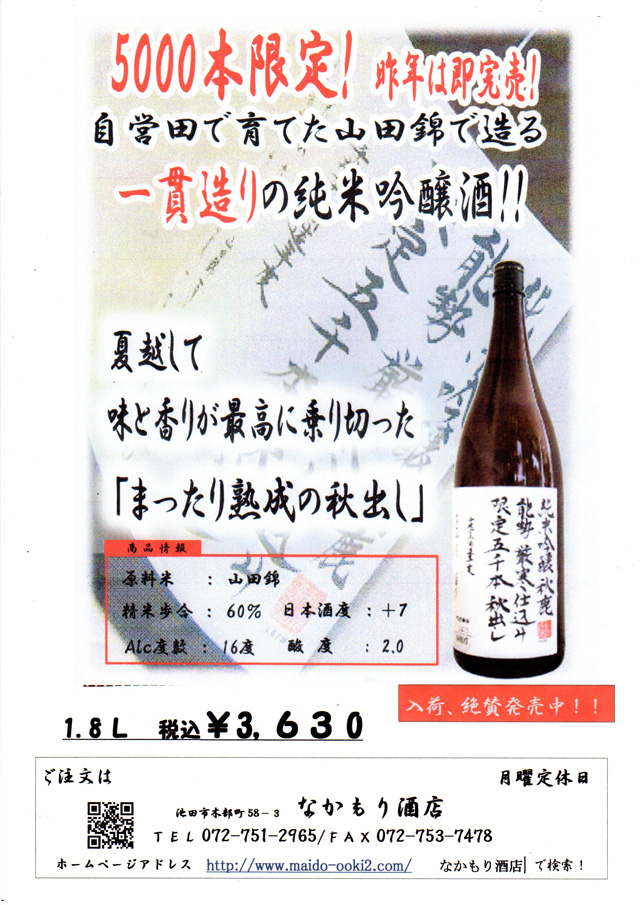 5000本限定! 昨年は即完売!
自営田で育てた山田錦で造る
一貫造りの純米吟醸酒!!
夏越して
味と香りが最高に乗り切った
「まったり熟成の秋出し」
商品情報
原料米 : 山田錦
精米歩合 : 60% 日本酒度 : +7
Alc度数 : 16度 酸度 : 2.0
純米吟醸 秋鹿
能勢 厳寒仕込み
限定五千本 秋出し
入荷、絶賛発売中!!
1.8L 税込¥3,630
ご注文は 月曜定休日
池田市木部町58-3 なかもり酒店
TEL072-751-2965/FAX072-753-7478
ホームページアドレス http://www.maido-ooki2.com/ なかもり酒店 で検索!